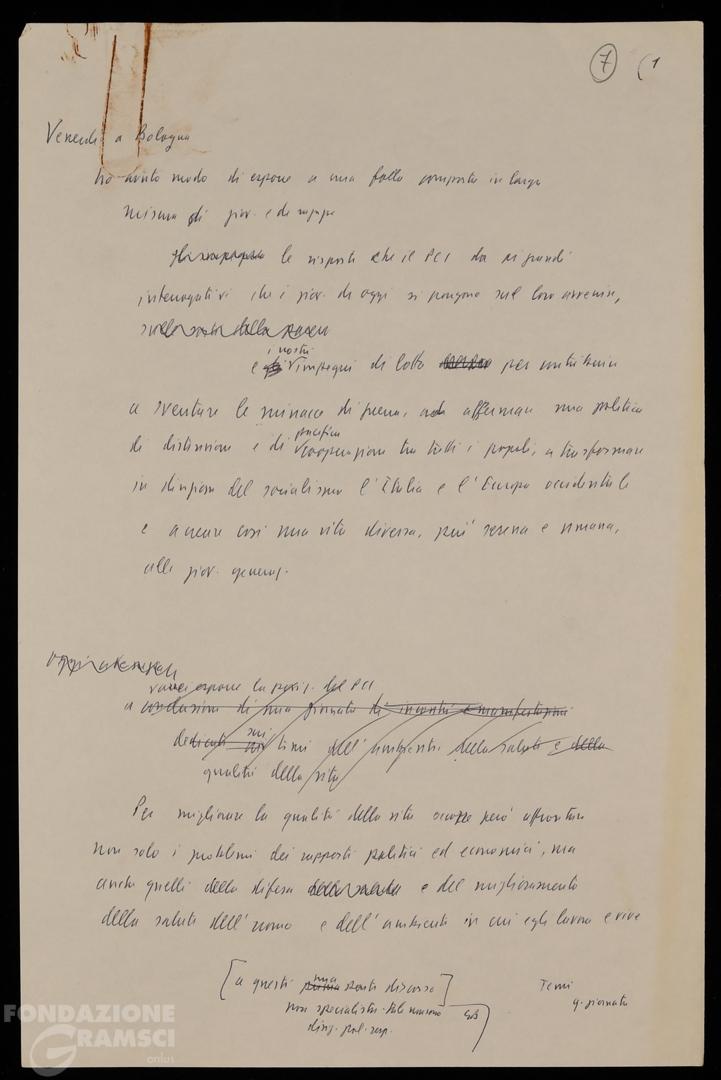 7 (1
Venerdì a Bologna
ho avuto modo di esporre a una folla composta in larga
misura di giov. e di ragazze
le risposte che il PCI dà ai grandi
interrogativi che i giov. di oggi si pongono sul loro avvenire,
i nostri
e impegni di lotta per contribuire
a sventare le minacce di guerra, ad affermare una politica
pacifica
di distensione e di cooperazione tra tutti i popoli, a trasformare
in direzione del socialismo l'Italia e l'Europa occidentale
e a creare così una vita diversa, più serena e umana,
alle giov. generaz.
Oggi a
vorrei esporre la posiz. del PCI
a conclusione di una giornata di incontri e manifestazioni
sui
dedicati temi dell'ambiente della salute e della
qualità della vita
Per migliorare la qualità della vita occorre però affrontare
non solo i problemi dei rapporti politici ed economici, ma
anche quelli della difesa e del miglioramento
della salute dell'uomo e dell'ambiente in cui egli lavora e vive
mia
[a questi parte discorso] Temi
non specialista q. giornata
dirig. pol. resp.
FONDAZIONE
GRAMSCI
onlus